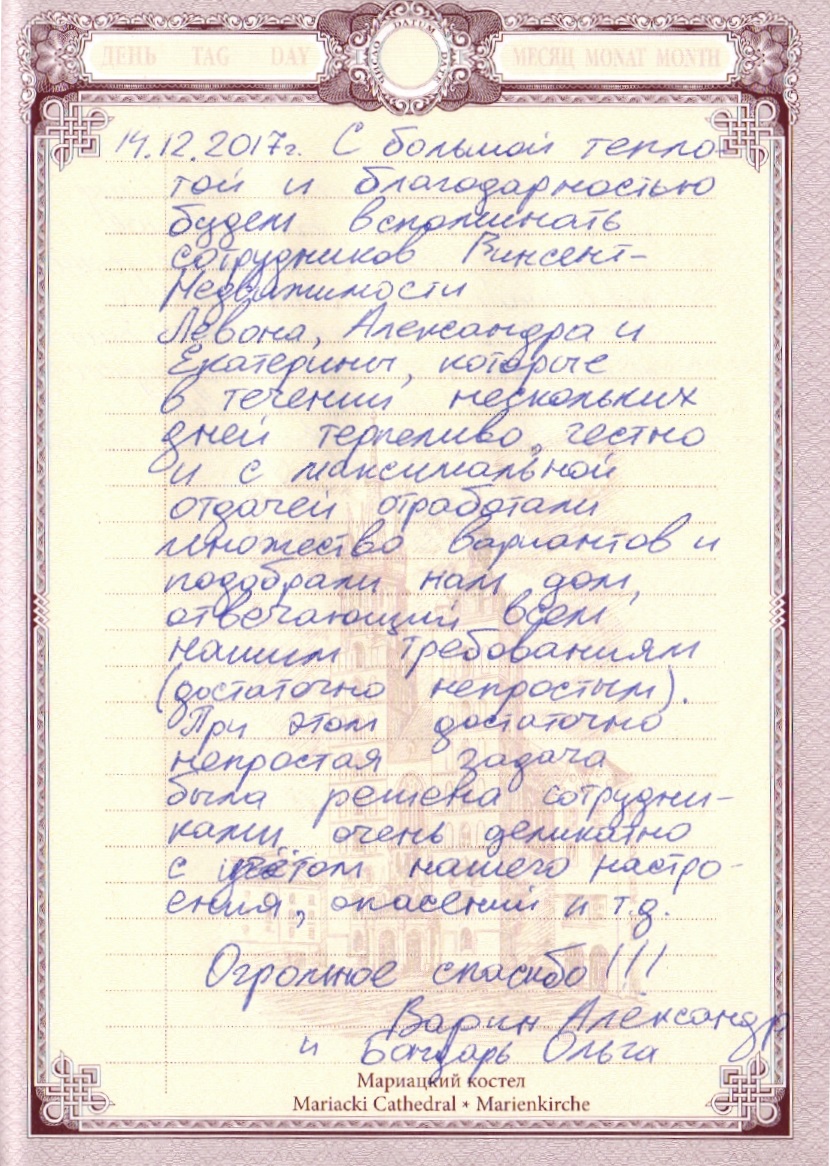 ДЕНЬ TAG DAY DATUM МЕСЯЦ MONAT MONTH
14.12.2017г. С большой тепло-
той и благодарностью
будем вспоминать
сотрудников Винсент-
Недвижимости
Левона, Александра и
Екатерины, которые
в течении нескольких
дней терпеливо, честно
и с максимальной
отдачей отработали
множество вариантов и
подобрали нам дом,
отвечающий всем
нашим требованиям
(достаточно непростым).
При этом достаточно
непростая задача
была решена сотрудни-
ками очень деликатно
с учётом нашего настро-
ения, опасений и т.д.
Огромное спасибо!!!
Варин Александр
и Бондарь Ольга
Мариацкий костел
Mariacki Cathedral * Marienkirche